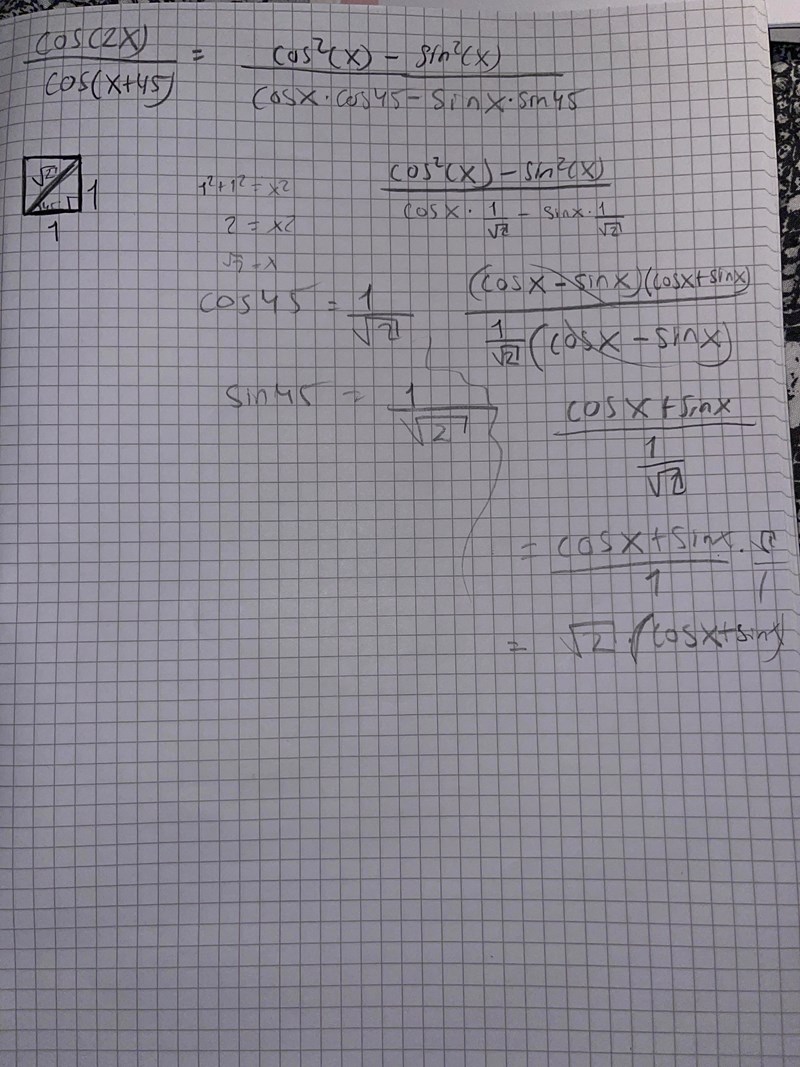 cos(2x) / cos(x+45) = cos²(x) - sin²(x) / cosx·cos45 - sinx·sin45
√2 1
1
1²+1² = x2
2 = x2
√2 = x
cos45 = 1/√2
sin45 = 1/√2
cos²(x) - sin²(x) / cosx · 1/√2 - sinx · 1/√2
(cosx - sinx)(cosx+sinx) / 1/√2 (cosx - sinx)
cosx + sinx / 1/√2
= cosx + sinx / 1 · √2 / 1
= √2 · (cosx+sinx)